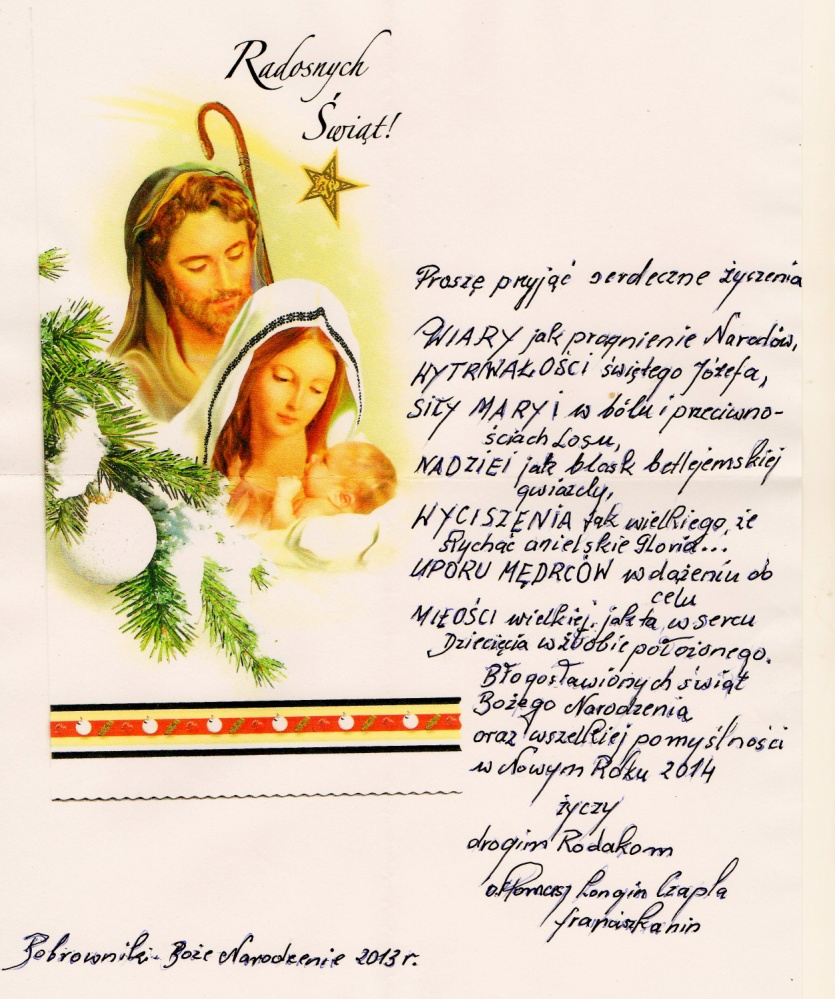 Radosnych
Świąt!
Proszę przyjąć serdeczne życzenia
WIARY jak pragnienie Narodów,
WYTRWAŁOŚCI świętego Józefa,
SIŁY MARYI w bólu i przeciwno-
ściach Losu,
NADZIEI jak blask betlejemskiej
gwiazdy,
WYCISZENIA tak wielkiego, że
słychać anielskie Gloria...
UPORU MĘDRCÓW w dążeniu do
celu
MIŁOŚCI wielkiej, jak ta w sercu
Dziecięcia w żłobie położonego.
Błogosławionych świąt
Bożego Narodzenia
oraz wszelkiej pomyślności
w Nowym Roku 2014
życzy
drogim Rodakom
o. Tomasz Longin Czapla
franciszkanin
Bobrowniki - Boże Narodzenie 2013 r.